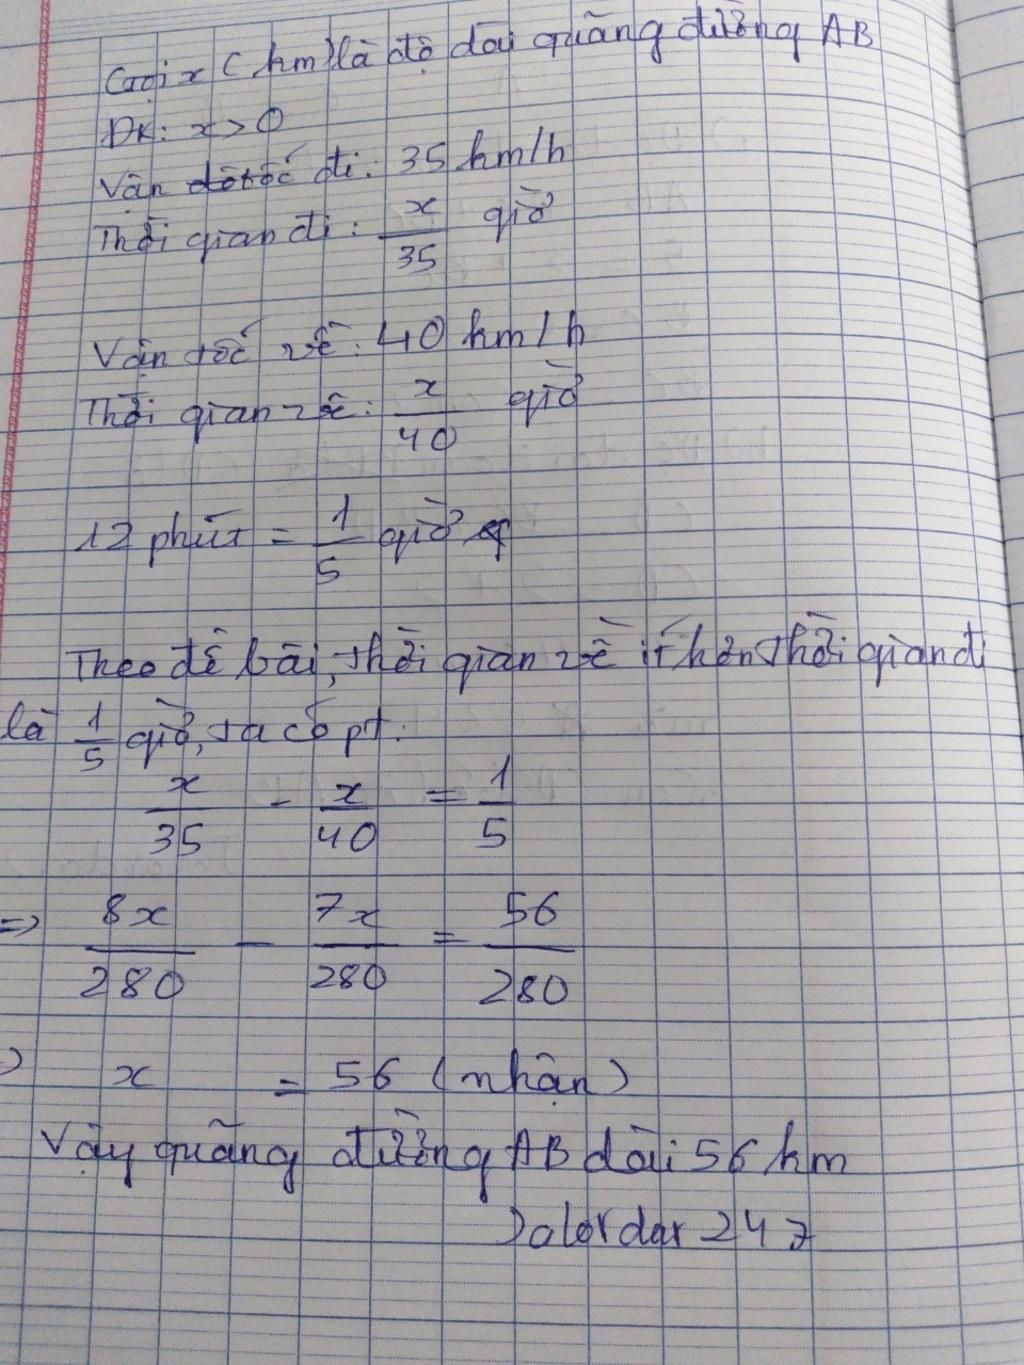 Gọi x (km) là độ dài quãng đường AB
ĐK: x > 0
Vận tốc đi: 35 km/h
Thời gian đi: x/35 giờ
Vận tốc về: 40 km/h
Thời gian về: x/40 giờ
12 phút = 1/5 giờ
Theo đề bài, thời gian về ít hơn thời gian đi
là 1/5 giờ, ta có pt:
x/35 - x/40 = 1/5
=> 8x/280 - 7x/280 = 56/280
=> x = 56 (nhận)
Vậy quãng đường AB dài 56 km